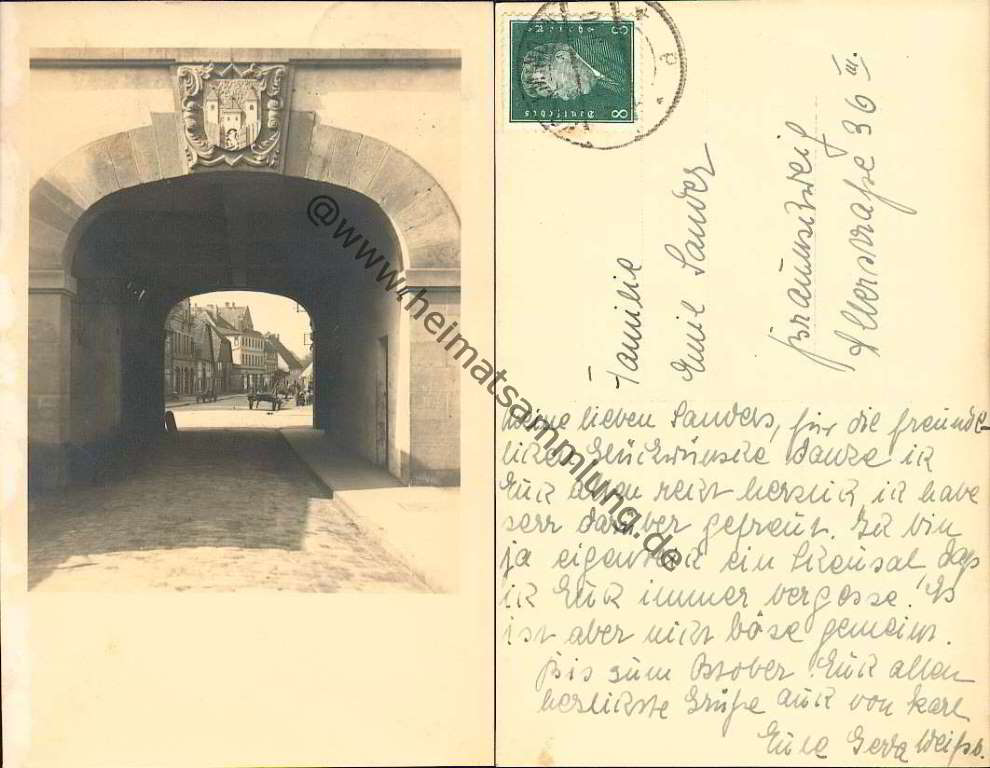 @www.heimatsammlung.de
8 8
Deutsches
Familie
Emil Sander
Braunschweig
Allerstraße 36 III.
Meine lieben Sanders, für die freund-
lichen Glückwünsche danke ich
Euch allen recht herzlich, ich habe
sehr darüber gefreut. Ich bin
ja eigentlich ein Scheusal daß
ich Euch immer vergesse! Es
ist aber nicht böse gemeint.
Bis zum Oktober! Euch allen
herzlichste Grüße auch von Karl
Eure Gerda